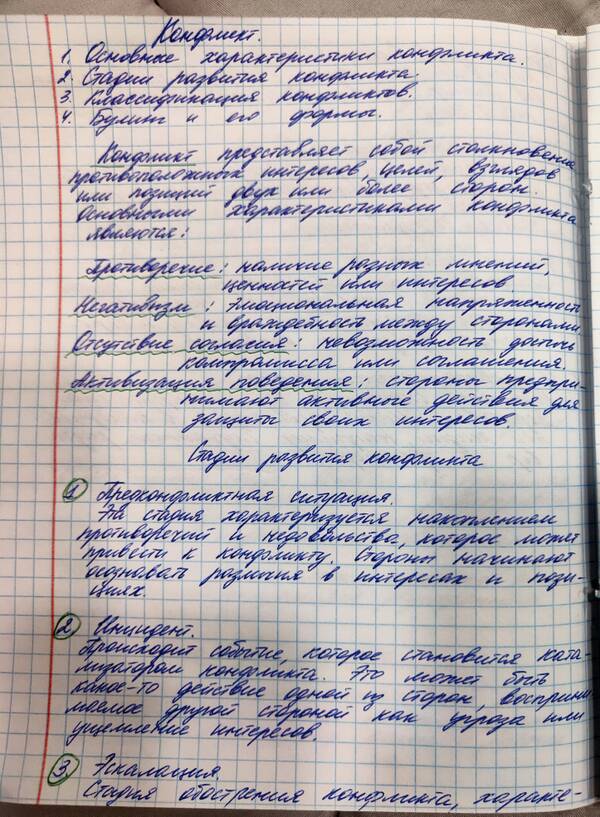 Конфликт.
1. Основные характеристики конфликта.
2. Стадии развития конфликта.
3. Классификация конфликтов.
4. Булинг и его формы.
Конфликт представляет собой столкновение
противоположных интересов, целей, взглядов
или позиций двух или более сторон.
Основными характеристиками конфликта
являются:
Противоречие: наличие разных мнений,
ценностей или интересов
Негативизм: эмоциональная напряженность
и враждебность между сторонами
Отсутствие согласия: невозможность достичь
компрамисса или соглашения.
Активизация поведения: стороны предпри-
нимают активные действия для
защиты своих интересов.
Стадии развития конфликта
1 Предконфликтная ситуация.
Эта стадия характеризуется накоплением
противоречий и недовольства, которое может
привести к конфликту. Стороны начинают
осознавать различия в интересах и пози-
циях.
2 Инцидент.
Происходит событие, которое становится ката-
лизатором конфликта. Это может быть
какое-то действие одной из сторон, восприни
маемое другой стороной как угроза или
ущемление интересов.
3 Эскалация.
Стадия обострения конфликта, характе-